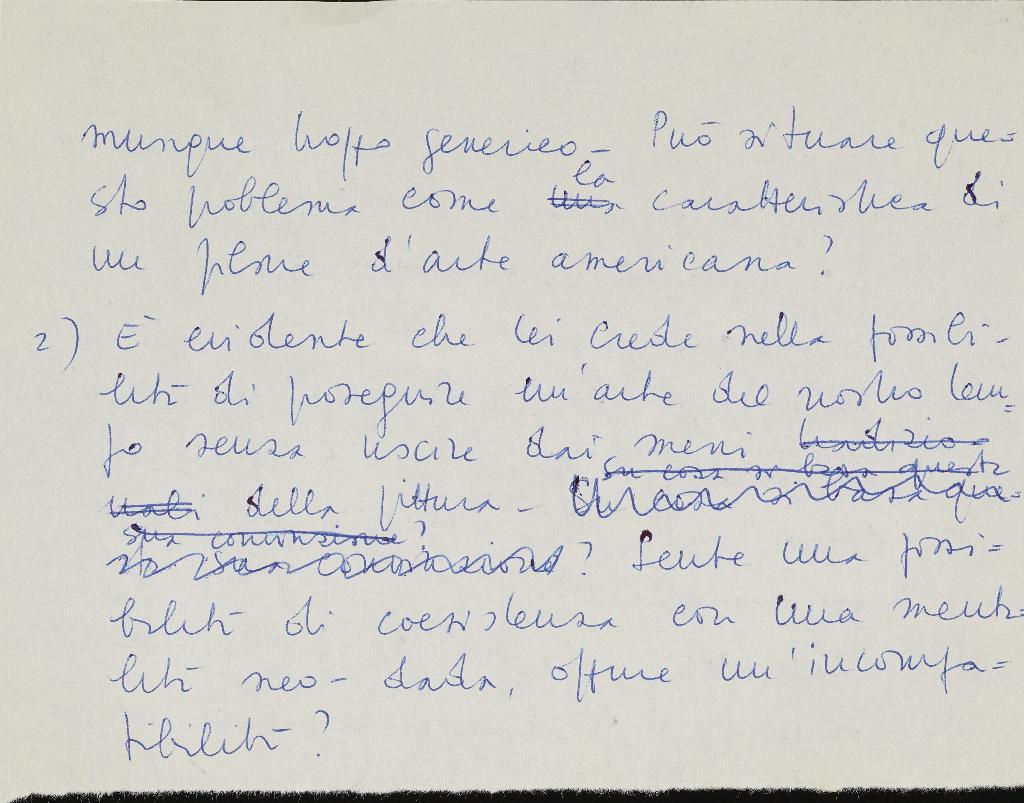 munque troppo generico – Può situare que=
la
sto problema come una caratteristica di
un filone d'arte americana?
2) È evidente che lei crede nella possibi-
lità di proseguire un'arte del nostro tem=
po senza uscire dai mezzi tradizio-
su cosa si basa questa
nali della pittura – Su cosa si basa que-
sua convinzione?
sta sua convinzione? Sente una possi=
bilità di coesistenza con una menta=
lità neo-dada, oppure un'incompa=
tibilità?